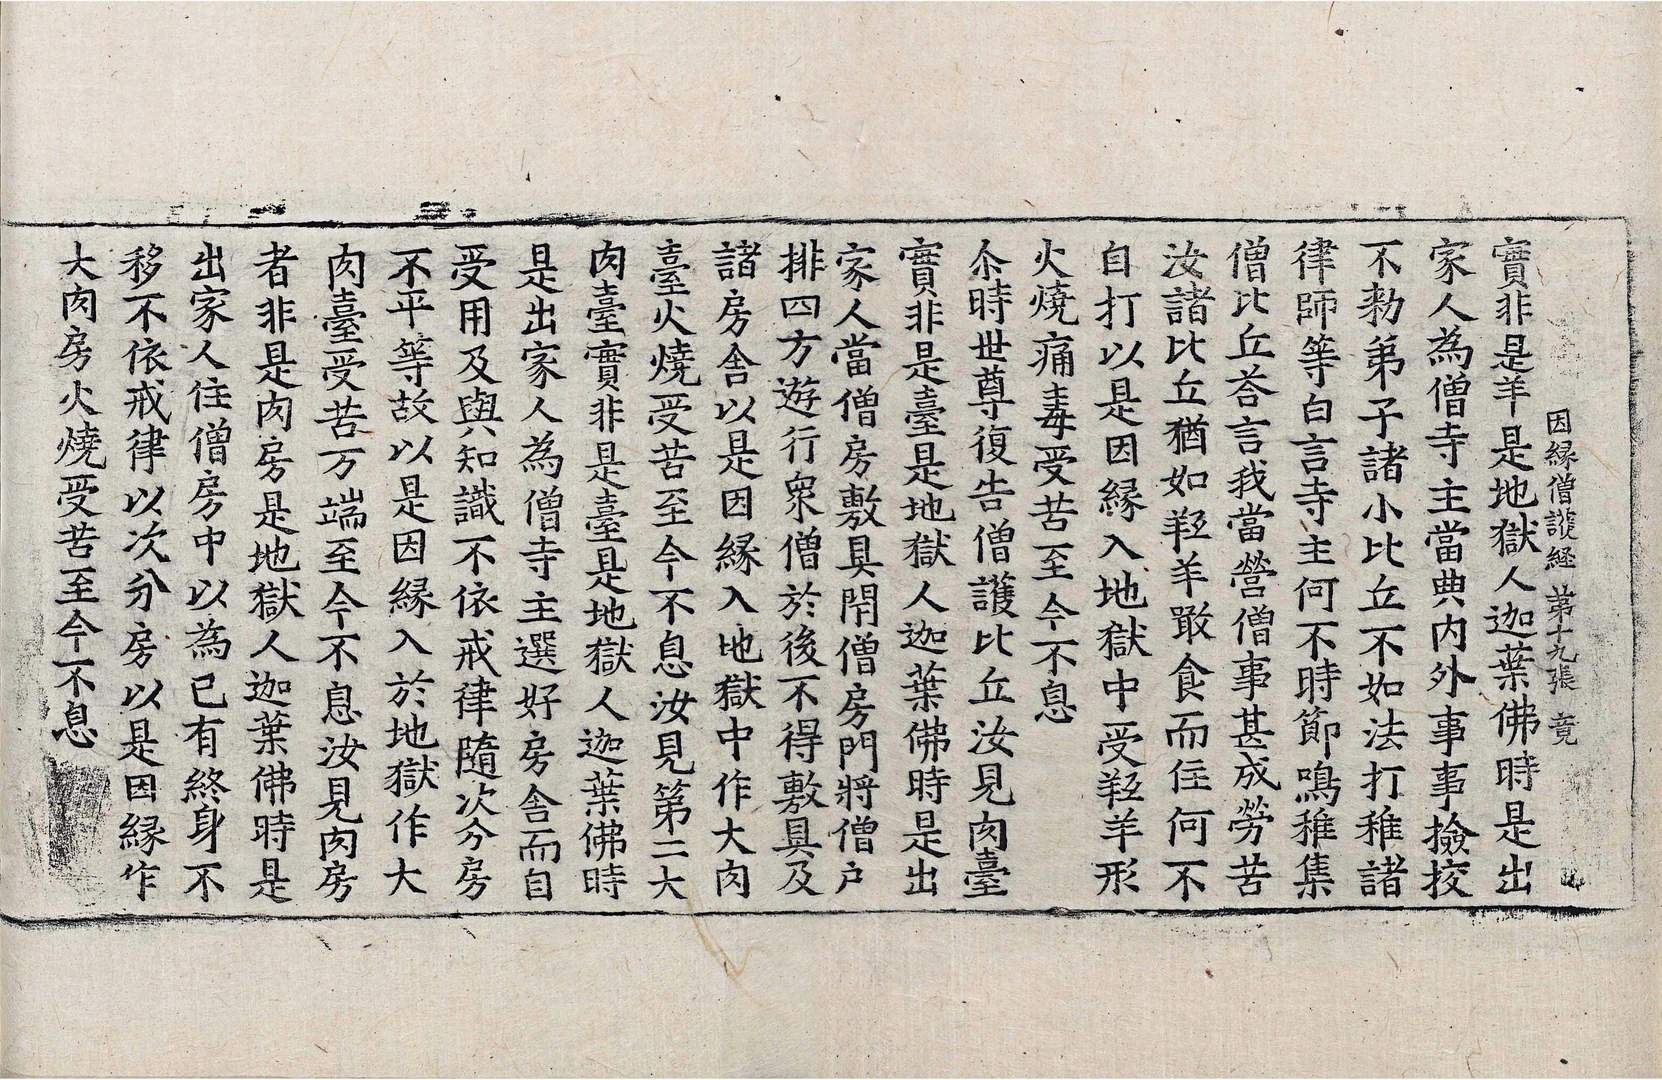 因緣僧護經 第十九張 竟
實非是羊是地獄人迦葉佛時是出
家人為僧寺主當典內外事事撿挍
不勑弟子諸小比丘不如法打稚諸
律師等白言寺主何不時節鳴稚集
僧比丘荅言我當營僧事甚成勞苦
汝諸比丘猶如羥羊噉食而住何不
自打以是因緣入地獄中受羥羊形
火燒痛毒受苦至今不息
尒時世尊復告僧護比丘汝見肉臺
實非是臺是地獄人迦葉佛時是出
家人當僧房敷具閇僧房門將僧户
排四方遊行衆僧於後不得敷具及
諸房舍以是因緣入地獄中作大肉
臺火燒受苦至今不息汝見第二大
肉臺實非是臺是地獄人迦葉佛時
是出家人為僧寺主選好房舍而自
受用及與知識不依戒律隨次分房
不平等故以是因緣入於地獄作大
肉臺受苦万端至今不息汝見肉房
者非是肉房是地獄人迦葉佛時是
出家人住僧房中以為已有終身不
移不依戒律以次分房以是因緣作
大肉房火燒受苦至今不息